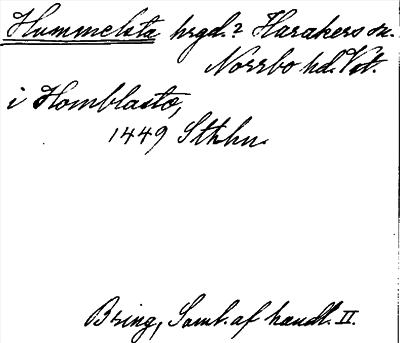 Hummelsta hrgd.? Harakers sn.
Norrbo hd. Vst.
i Homblasta,
1449 Sthlm.
Bring, Saml. af handl. II.